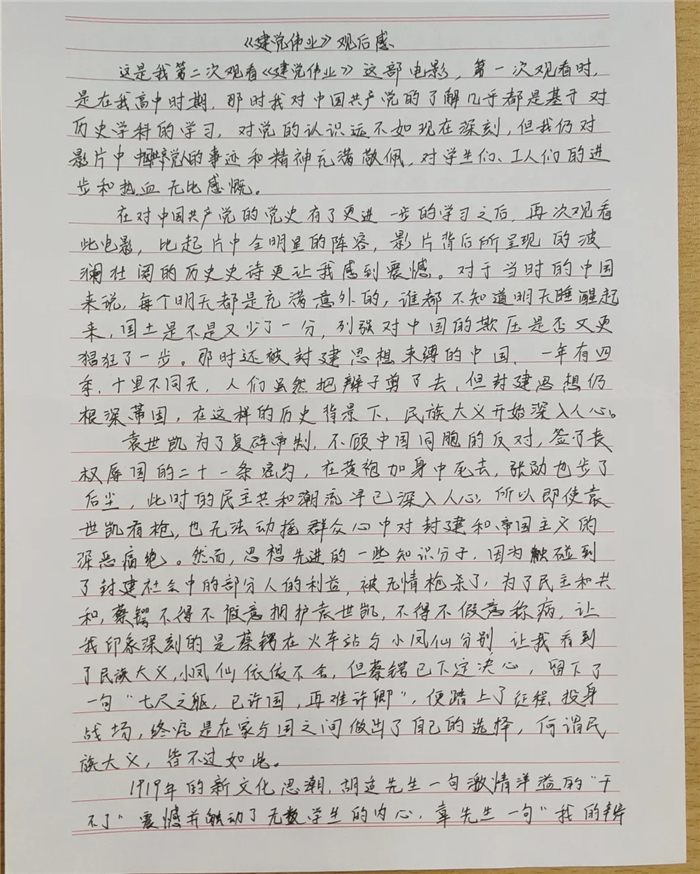 《建党伟业》观后感
这是我第二次观看《建党伟业》这部电影，第一次观看时，
是在我高中时期，那时我对中国共产党的了解几乎都是基于对
历史学科的学习，对党的认识远不如现在深刻，但我仍对
影片中的事迹和精神充满敬佩，对学生们、工人们的进
步和热血无比感慨。
在对中国共产党的党史有了更进一步的学习之后，再次观看
此电影，比起片中全明星的阵容，影片背后所呈现的波
澜壮阔的历史史诗更让我感到震憾。对于当时的中国
来说，每个明天都是充满意外的，谁都不知道明天睡醒起
来，国土是不是又少了一分，列强对中国的欺压是否又更
猖狂了一步。那时还被封建思想束缚的中国，一年有四
季，十里不同天，人们虽然把辫子剪了去，但封建思想仍
根深蒂固，在这样的历史背景下，民族大义开始深入人心。
袁世凯为了复辟帝制，不顾中国同胞的反对，签了丧
权辱国的二十一条，在黄袍加身中死去，张勋也步了
后尘，此时的民主共和潮流早已深入人心，所以即使袁
世凯有枪，也无法动摇群众心中对封建和帝国主义的
深恶痛绝。然而，思想先进的一些知识分子，因为触碰到
了封建社会中的部分人的利益，被无情枪杀了，为了民主和共
和，蔡锷不得不假意拥护袁世凯，不得不假意称病，让
我印象深刻的是蔡锷在火车站与小凤仙分别，让我看到
了民族大义，小凤仙依依不舍，但蔡锷已下定决心，留下了
一句“七尺之躯，已许国，再难许卿”，便踏上了征程，投身
战场，终究是在家与国之间做出了自己的选择，何谓民
族大义，皆不过如此。
1919年的新文化思潮，胡适先生一句激情洋溢的“干
不了”震憾并触动了无数学生的内心，辜先生一句“我的辫